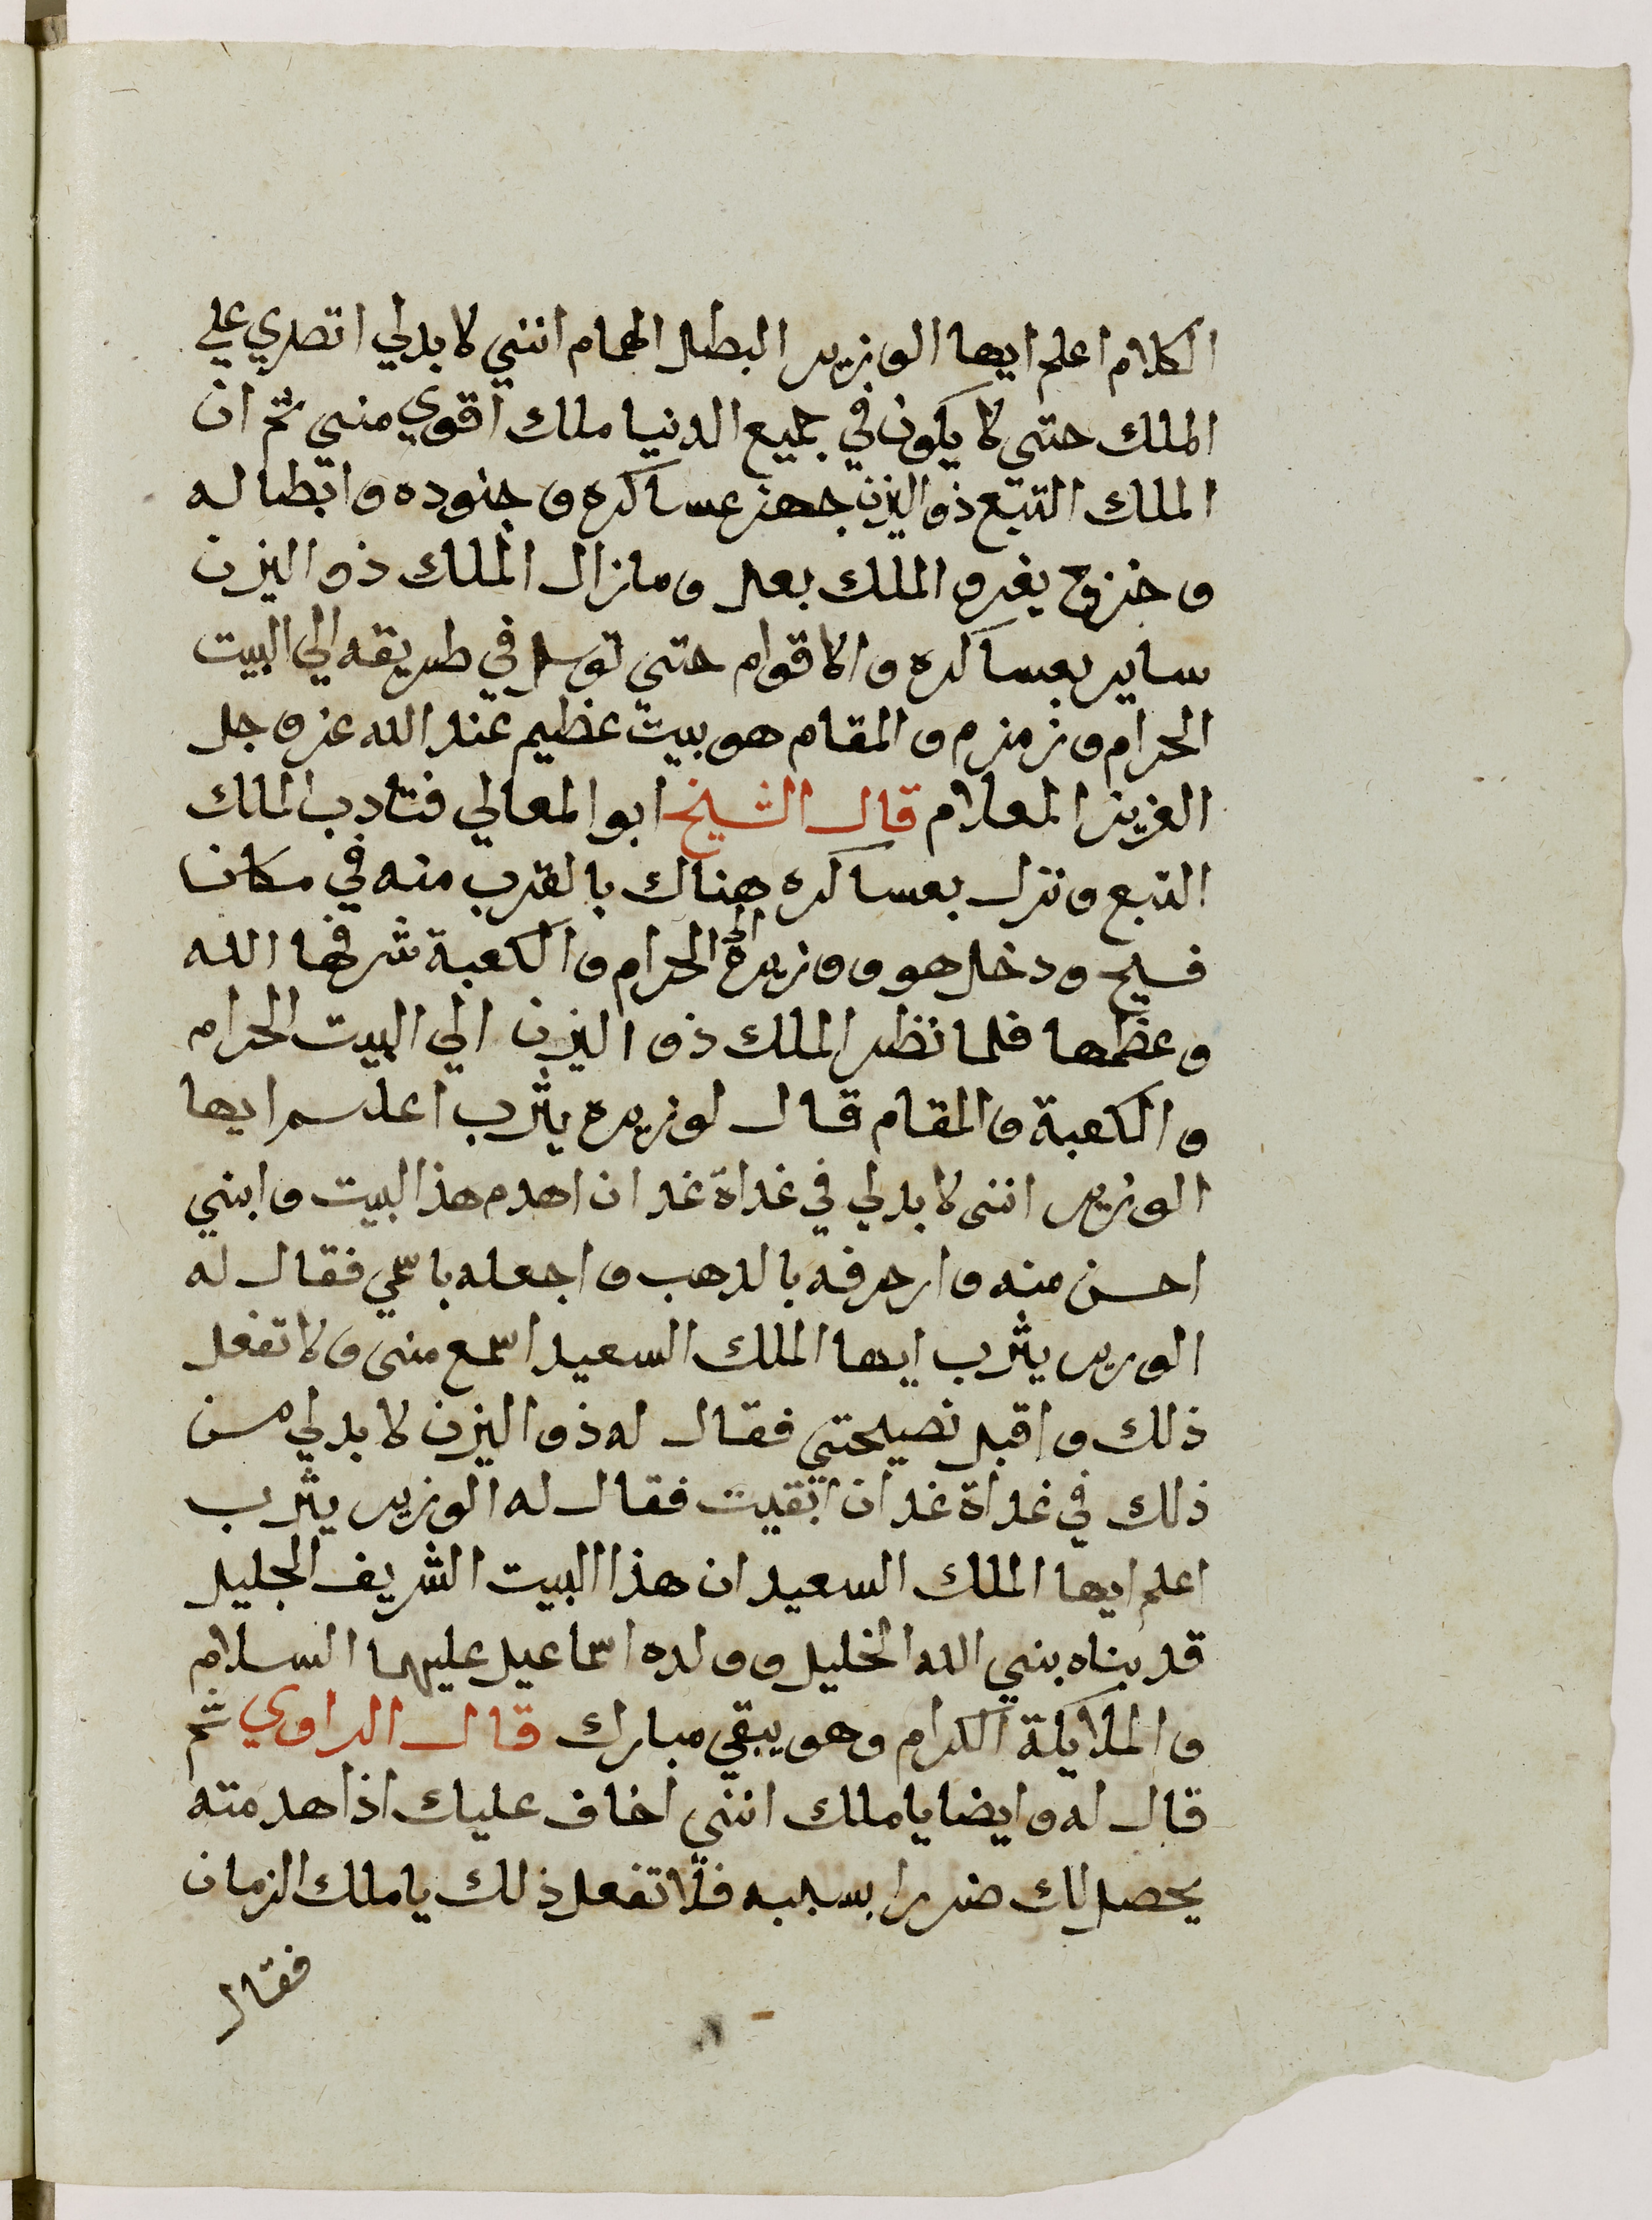 الكلام اعلم ايها الوزير البطل الهمام انني لا بدلي اتصدي علي
الملك حتي لا يكون في جميع الدنيا ملك اقوي مني ثم ان
الملك التبع ذو اليزن جهز عساكره و جنوده و ابطاله
و خزوج يغزو الملك بعل و مازال الملك ذو اليزن
ساير بعساكره و الاقوام حتي توسل في طريقه الي البيت
الحرام و زمزم و المقام هو بيت عظيم عند الله عز و جل
العزيز المعلام قال الشيخ ابو المعالي فتادب الملك
التبع و نزل بعساكره هناك بالقرب منه في مكان
فسيح و دخل هو و وزيره الي الحرام و الكعبة شرفها الله
و عظمها فلما نظر الملك ذو اليزن الي البيت الحرام
و الكعبة و المقام قال لوزيره يثرب اعلم ايها
الوزير انني لا بدلي في غداة غد ان اهدم هذا البيت و ابني
احسن منه و ازحرفه بالدهب و اجعله باسمي فقال له
الوزير يثرب ايها الملك السعيد اسمع مني و لا تفعل
ذلك و اقبل نصيحتي فقال له ذو اليزن لا بدلي من
ذلك في غداة غد ان ابقيت فقال له الوزير يثرب
اعلم ايها الملك السعيد ان هذا البيت الشريف الجليل
قد بناه بني الله الخليل و ولده اسماعيل عليهما السلام
و الملايكة الكرام و هو يبقي مبارك قال الراوي ثم
قال له و ايضا يا ملك انني اخاف عليك اذا هدمته
يحصل لك ضررا بسببه فلا تفعل ذلك يا ملك الزمان
فقال